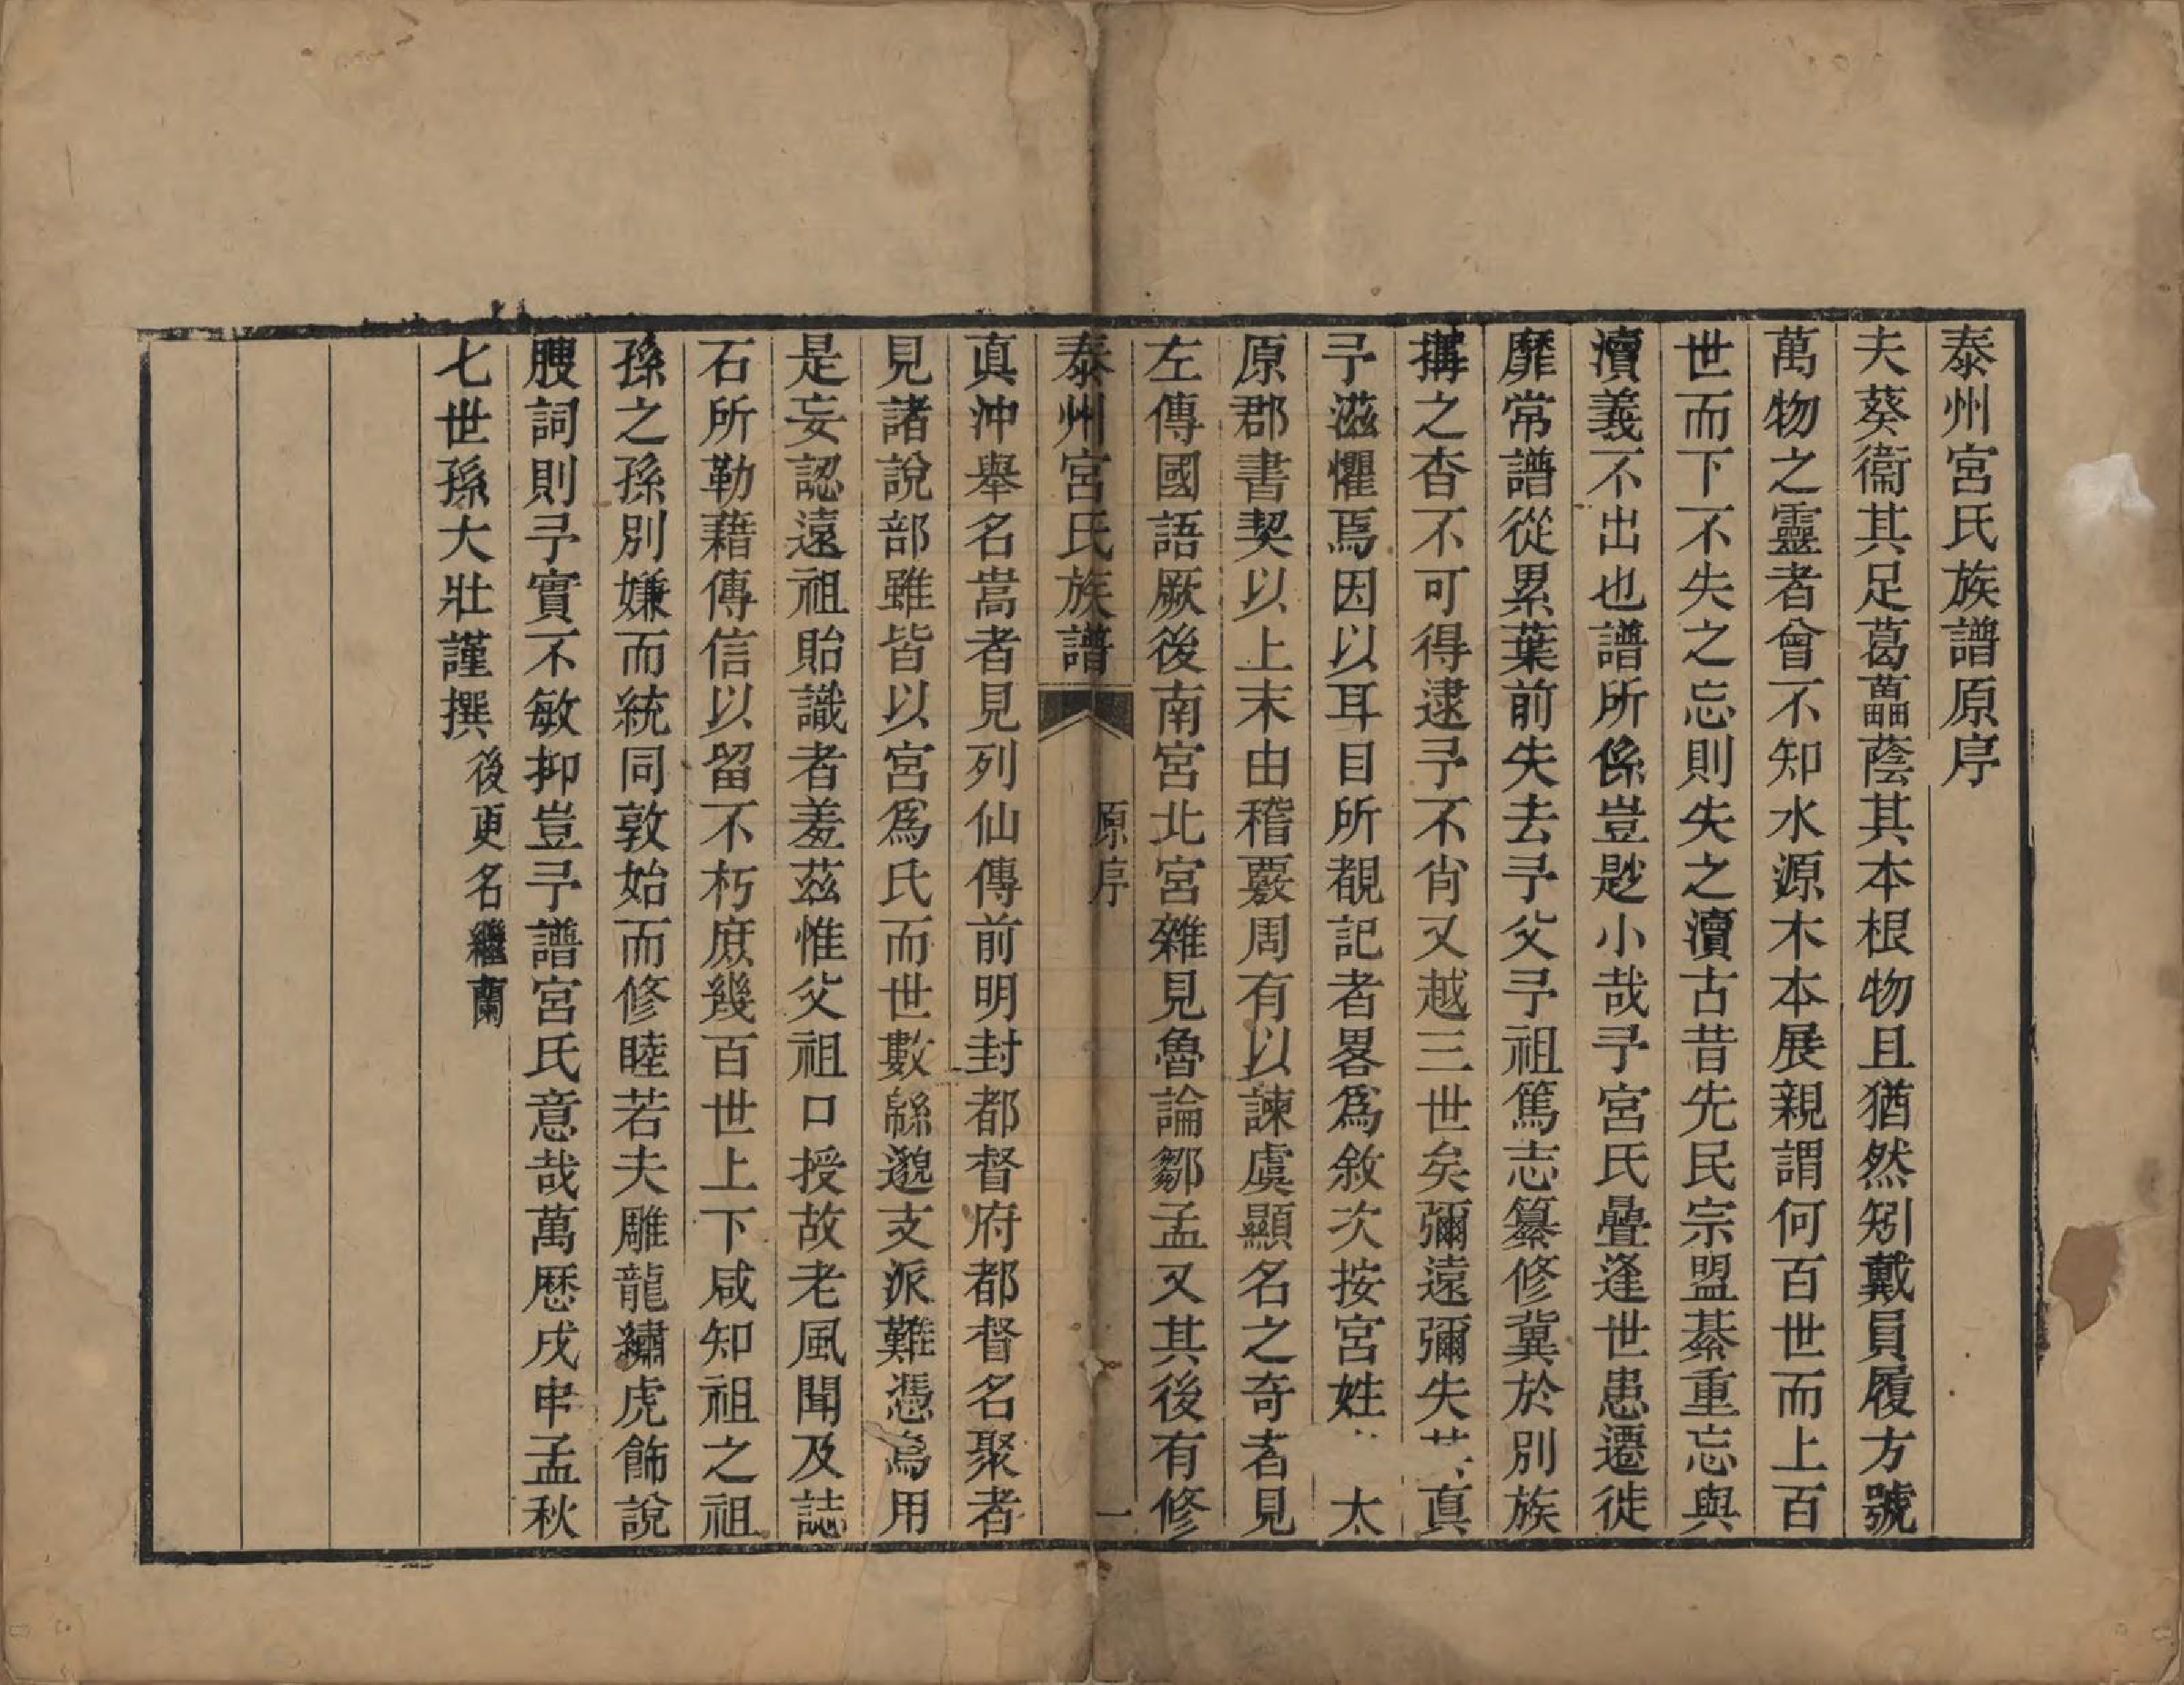 泰州宮氏族譜原序
夫葵衞其足葛藟蔭其本根物且猶然矧戴員履方號
萬物之靈者曾不知水源木本展親謂何百世而上百
世而下不失之忘則失之瀆古昔先民宗盟綦重忘與
瀆義不出也譜所係豈尟小哉予宮氏疊逢世患遷徙
靡常譜從累葉前失去予父予祖篤志纂修冀於別族
搆之杳不可得逮予不肖又越三世矣彌遠彌失其真
予滋懼焉因以耳目所覩記者畧爲敘次按宮姓 太
原郡書契以上末由稽覈周有以諫虞顯名之奇者見
左傳國語厥後南宮北宮雜見魯論鄒孟又其後有修
泰州宮氏族譜 原序 一
眞沖舉名嵩者見列仙傳前明封都督府都督名聚者
見諸說部雖皆以宮爲氏而世數緜邈支派難憑焉用
是妄認遠祖貽識者羞茲惟父祖口授故老風聞及誌
石所勒藉傳信以留不朽庶幾百世上下咸知祖之祖
孫之孫別嫌而統同敦始而修睦若夫雕龍繡虎飾說
膄詞則予實不敏抑豈予譜宮氏意哉萬歷戊申孟秋
七世孫大壯謹撰 後更名繼蘭